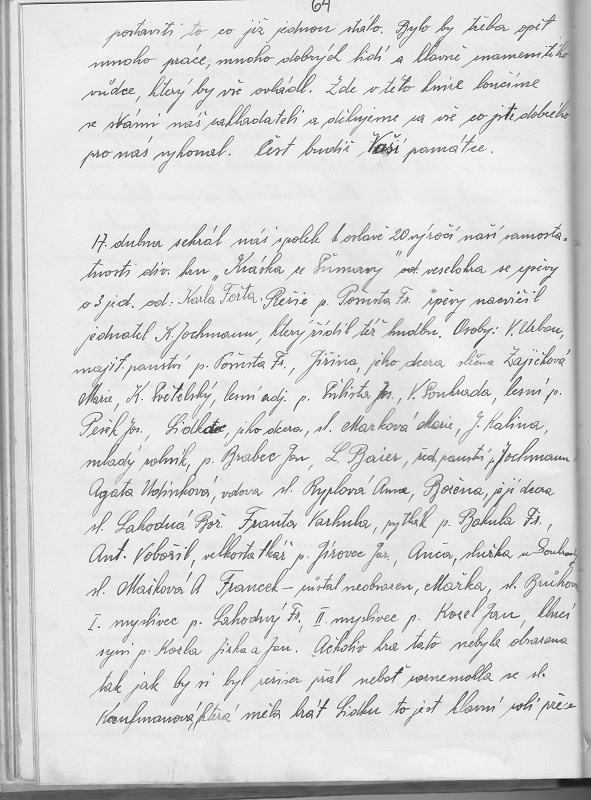 64
postaviti to co již jednou stálo. Bylo by třeba opět
mnoho práce, mnoho dobrých lidí a hlavně znamenitého
vůdce, který by vše ovládl. Zde v této knize loučíme
se s Vámi naši zakladateli a děkujeme za vše co jste dobrého
pro nás vykonal. Čest budiž Vaší památce.
17. dubna sehrál náš spolek k oslavě 20 výročí naší samosta-
tnosti div. hru „Kráska ze Šumavy" veselohra se zpěvy
o 3 jed. od: Karla Fořta. Režie p. Tomsta Fr. zpěvy nacvičil
jednatel K. Jochmann, který řídil též hudbu. Osoby: V. Urban,
majit. panství p. Fr., Jiřina, jeho dcera slečna Zajíčková
Marie, K. Světelský, lesní adj. p. Jos., V. Souhrada, lesní p.
Pešek Jos., Lidka, jeho dcera, sl. Marková Marie, J. Kalina,
mladý rolník, p. Brabec Jan, L. Baier, řed. panství, Jochmann
Agata Vošinková, vdova sl. Ryplová Anna, Božena, její dcera
sl. Lahodná Bož. Franta Varhula, pytlák p. Bakula Fr.,
Ant. Vobořil, velkostatkář p. Jírovec Jar., Anča, služka u Souhrady
sl. Mašková A Francek – zůstal neobsazen, Mařka, sl.
I. myslivec p. Lahodný Fr., II myslivec p. Kozel Jan, kluci
syni p. Karla Jirka a Jan. Ačkoliv hra tato nebyla obsazena
tak jak by si byl režiser přál neboť se sl.
Kaufmanová, která měla hrát Lidku to jest hlavní roli přece